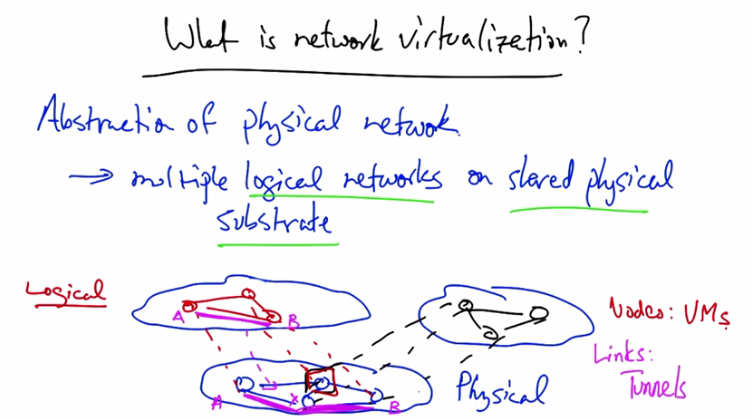 What is network virtualization?
Abstraction of physical network
→ multiple logical networks on shared physical
substrate
Logical
A
B
Nodes: VMs
Links:
Tunnels
Physical
A
X
B